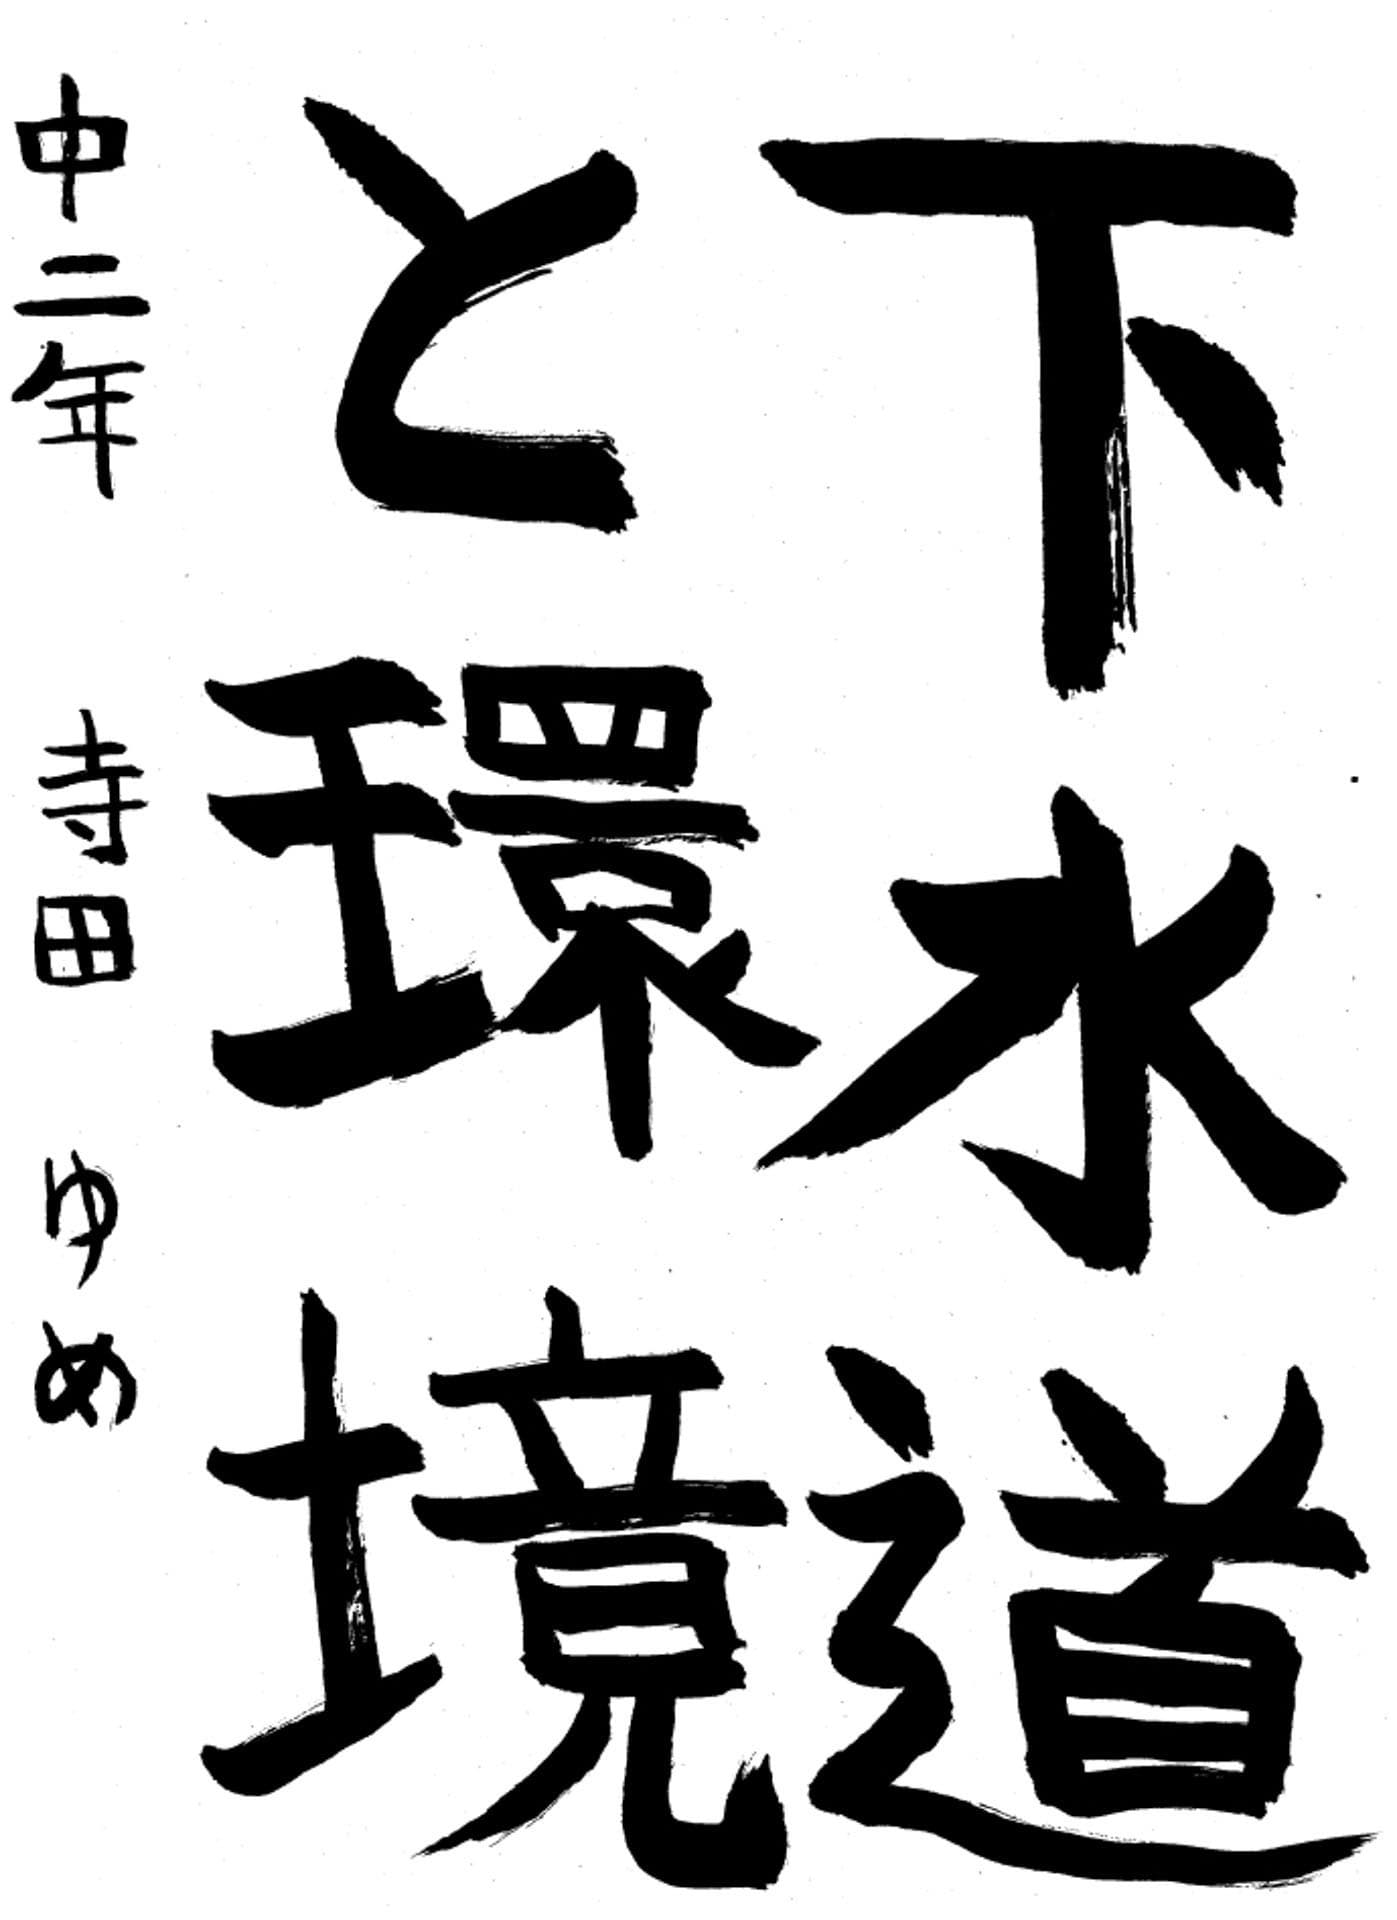 下水道
と環境
中二年 寺田 ゆめ